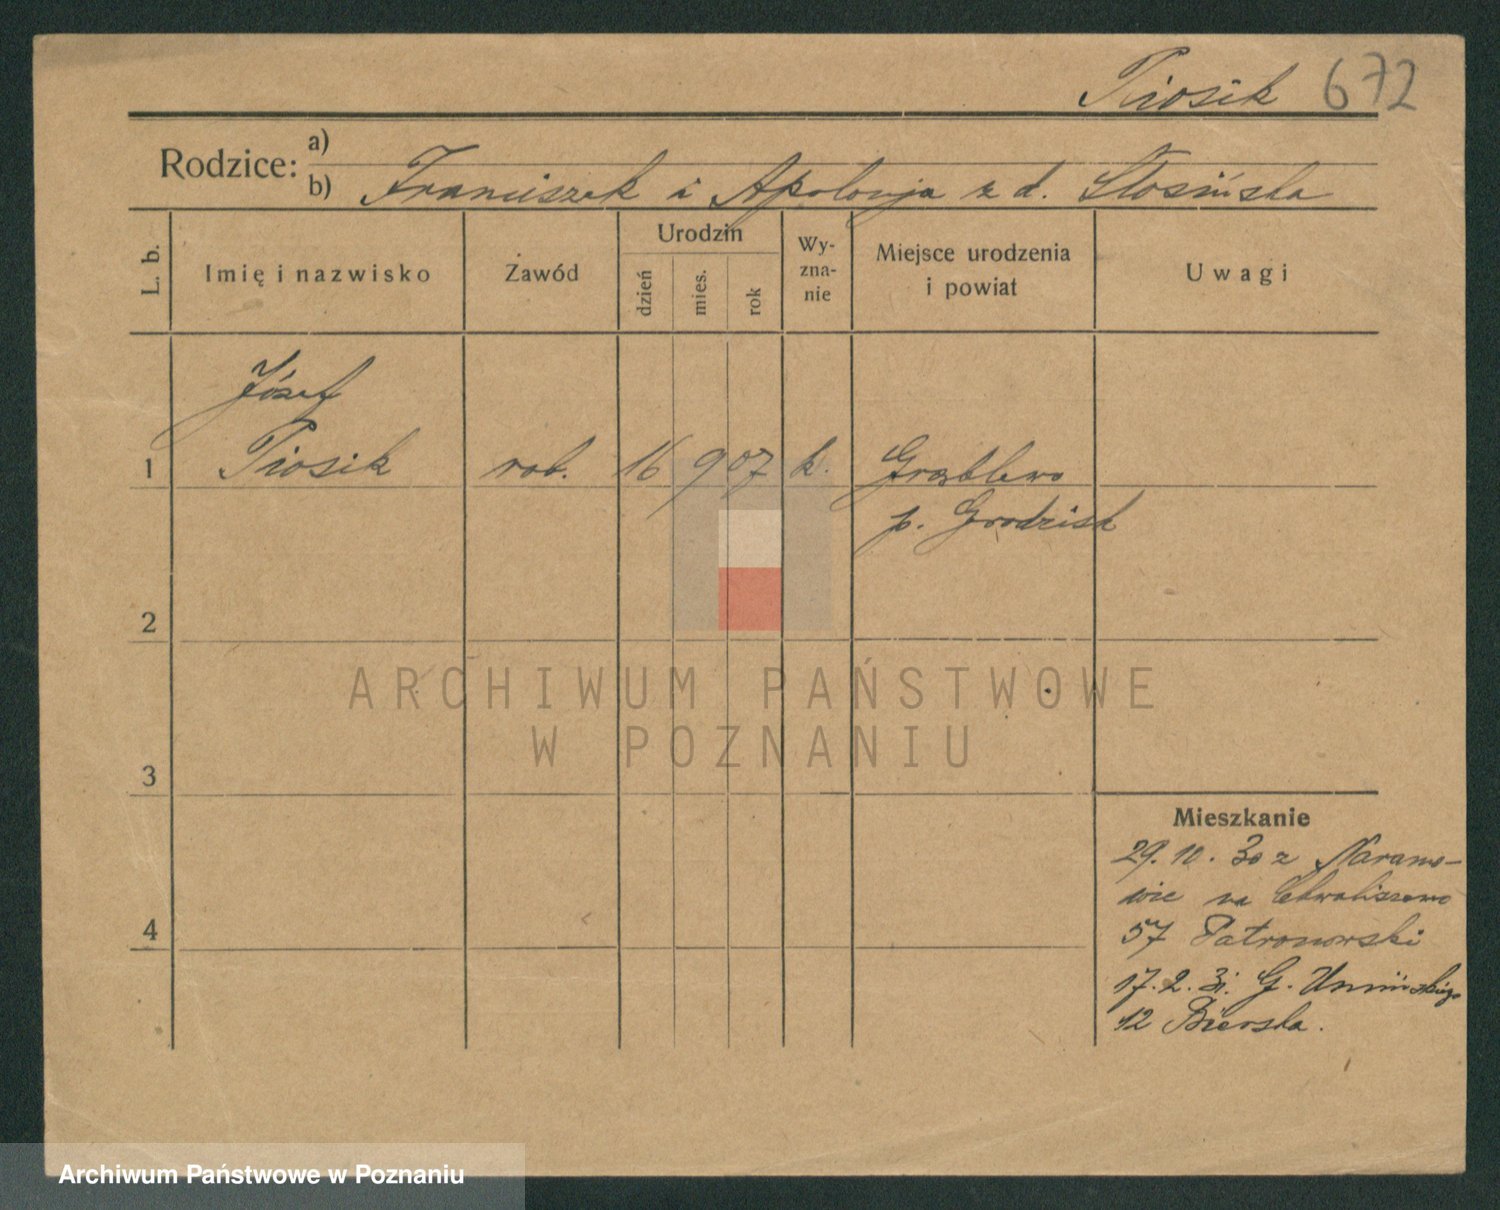 Piosik 672
Rodzice: a)
b) Franciszek i Apolonja z d. Słosińska
L. b. Imię i nazwisko Zawód Urodzin dzień mies. rok Wy-zna-nie Miejsce urodzenia i powiat Uwagi
Józef
1 Piosik rob. 16 9 07 k. Grąblewo
p. Grodzisk
2
ARCHIWUM PAŃSTWOWE
W POZNANIU
3
Mieszkanie
29.10.30 z Naramo-
wic na Chwaliszewo
4 57 Patronowski
17.2.31. G. Umińskiego
12 Bierska.
Archiwum Państwowe w Poznaniu